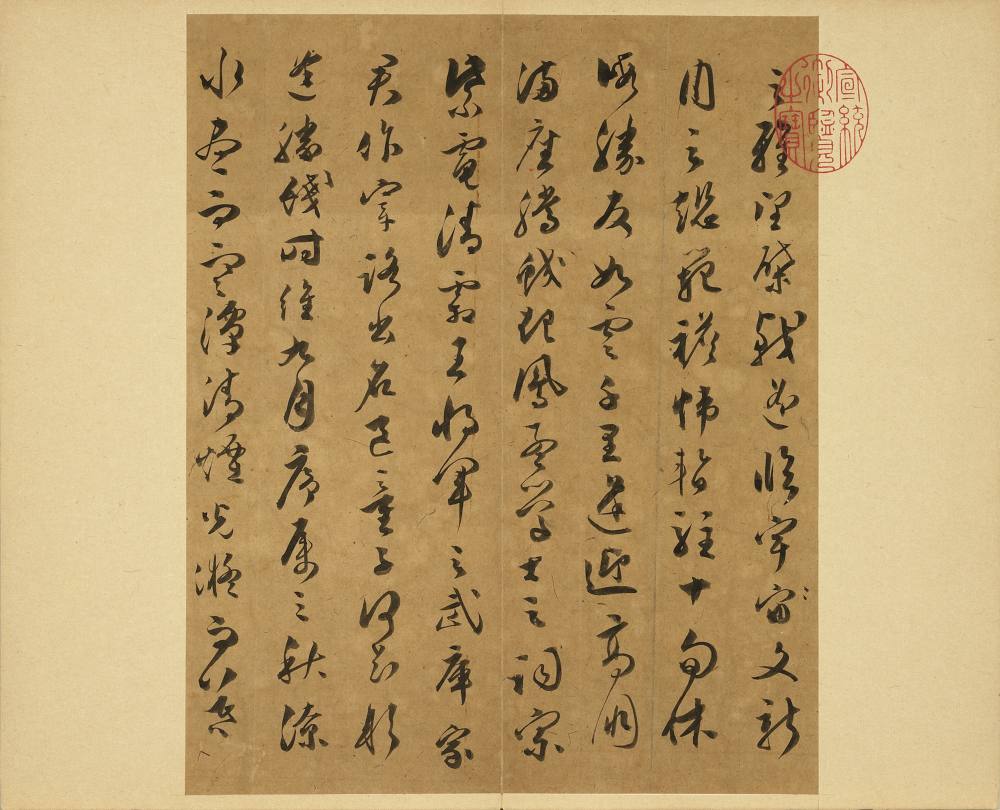 之雅望棨戟遙臨宇宙文新
州之懿範襜帷暫駐十旬休
暇勝友如雲千里逢迎高朋
滿座騰蛟起鳳孟學士之詞宗
紫電清霜王將軍之武庫家
君作宰路出名區童子何知躬
逢勝餞時維九月序屬三秋潦
水盡而寒潭清煙光凝而
宣統御覽之寶